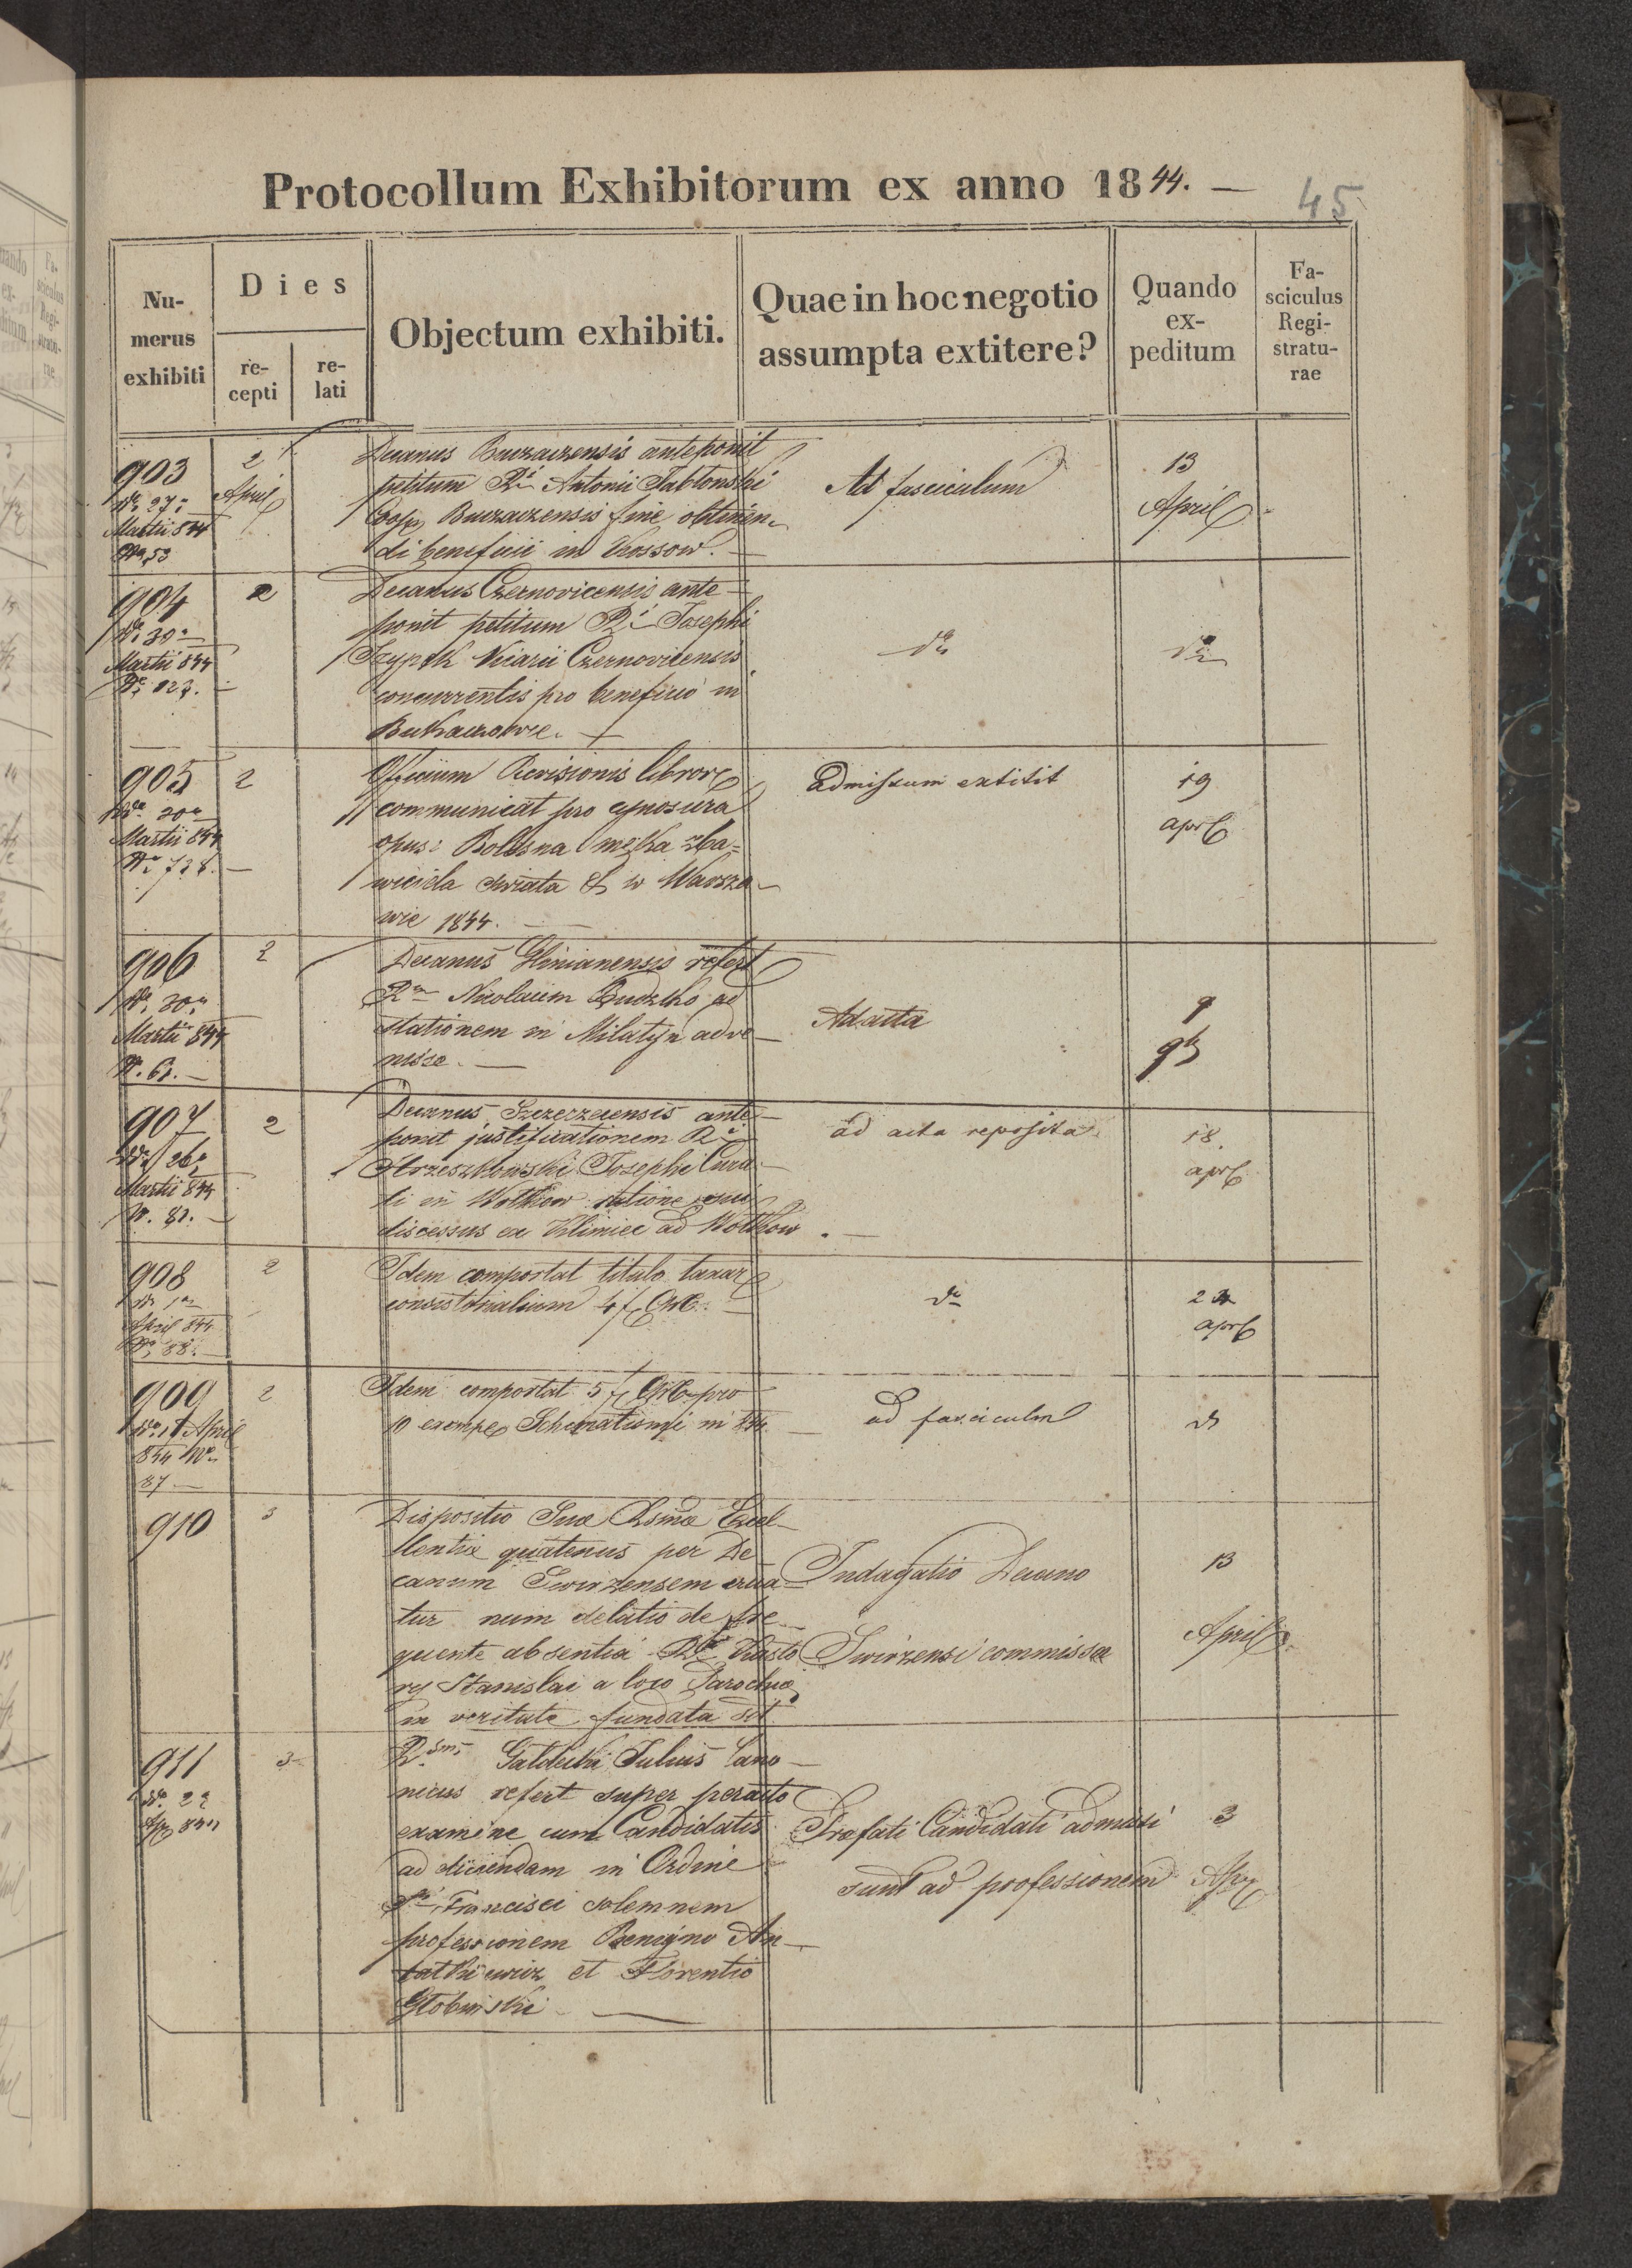 Protocollum Exhibitorum ex anno 1844. —
45
Nu-
merus
exhibiti
Dies
re-
cepti
re-
lati
Objectum exhibiti.
Quae in hoc negotio
assumpta extitere?
Quando
ex-
peditum
Fa-
sciculus
Regi-
stratu-
rae
903
27
Martii 844
53
2
April
Decanus Buczaczensis anteponit
petitum Antonii Jabłonski
Coop. Buczaczensis fine obtinen-
di beneficii in Kossow. —
Ad fasciculum
13
April
904
30
Martii 844
123. —
2
Decanus Czernovicensis ante-
ponit petitum Josephi
Vicarii Czernovicensis
concurrentis pro beneficio in
Bukaczowce. —
do
do
905
30
Martii 844
738. —
2
Officium Revisionis libror
communicat pro cynosura
opus: Bolesna męka zba=
wiciela swiata & w Warsza-
wie 1844. —
admissum extitit
19
apr
906
30
Martii 844
61. —
2
Decanus Glinianensis refert
Rm Nicolaum Budzko ad
stationem in Milatyn adve-
nisse. —
Ad acta
9
907
26
Martii 844
N. 81. —
2
Decanus Szczerzecensis ante-
ponit justificationem
Josephi Cura-
ti in Wołkow ratione sui
discessus ex Klimiec ad Wołkow. —
ad acta reposita
18.
apr
908
1
April 844
88. —
2
Idem comportat titulo taxar
consistorialium 4 f
do
24
apr
909
1 April
844 No
87 —
2
Idem comportat 5 f pro
10 exempl Schematismi in 844. —
ad faciculum
do
910
3
Dispositio Suae Excel-
llentiae quatenus per De-
canum Swirzensem erua-
tur num delatio de fre-
quente absentia
Stanislai a loco Parochiae
in veritate fundata sit.
Indagatio Decano
Swirzensi commissa
13
April
911
2
Apr 844
3
Rsmus Gałdecki Julius Cano-
nicus refert super peracto
examine cum Candidatis
ad diicendam in Ordine
Sti Francisci solemnem
professionem Benigno An-
tatkiewicz et Florentio
Głobinski —
Praefati Candidati admissi
sunt ad professionem
3
Apr